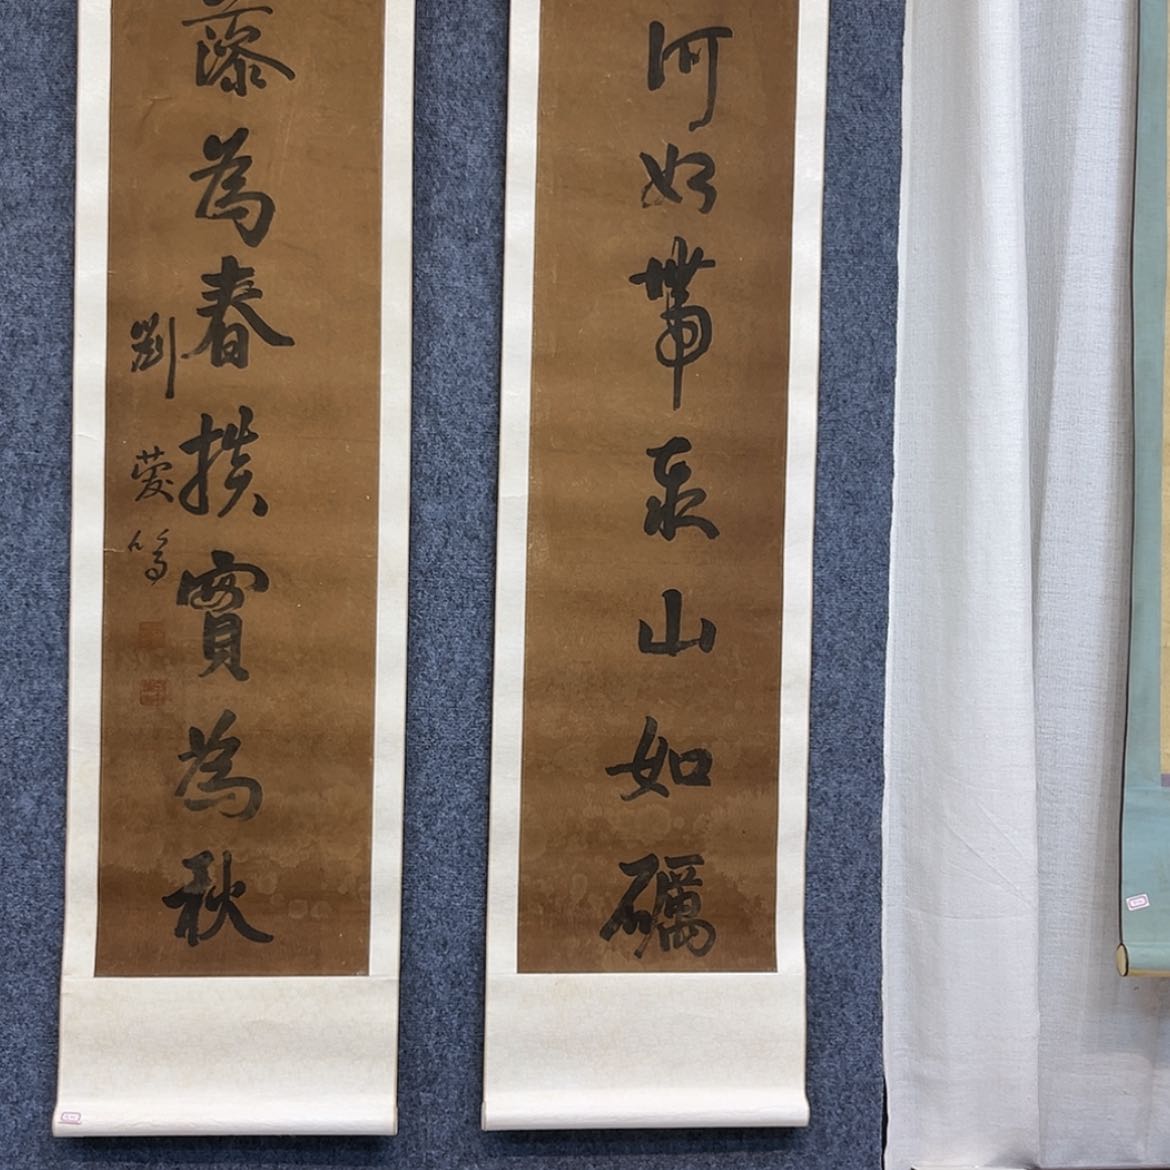 河如帶泰山如礪
藻為春 實為秋
劉